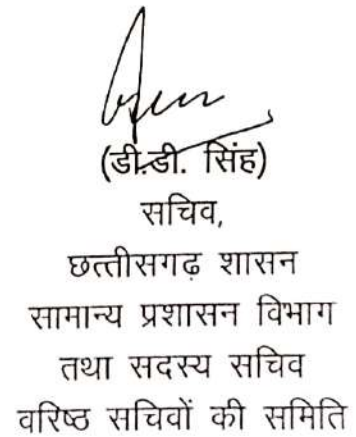 (डी.डी. सिंह)
सचिव,
छत्तीसगढ़ शासन
सामान्य प्रशासन विभाग
तथा सदस्य सचिव
वरिष्ठ सचिवों की समिति